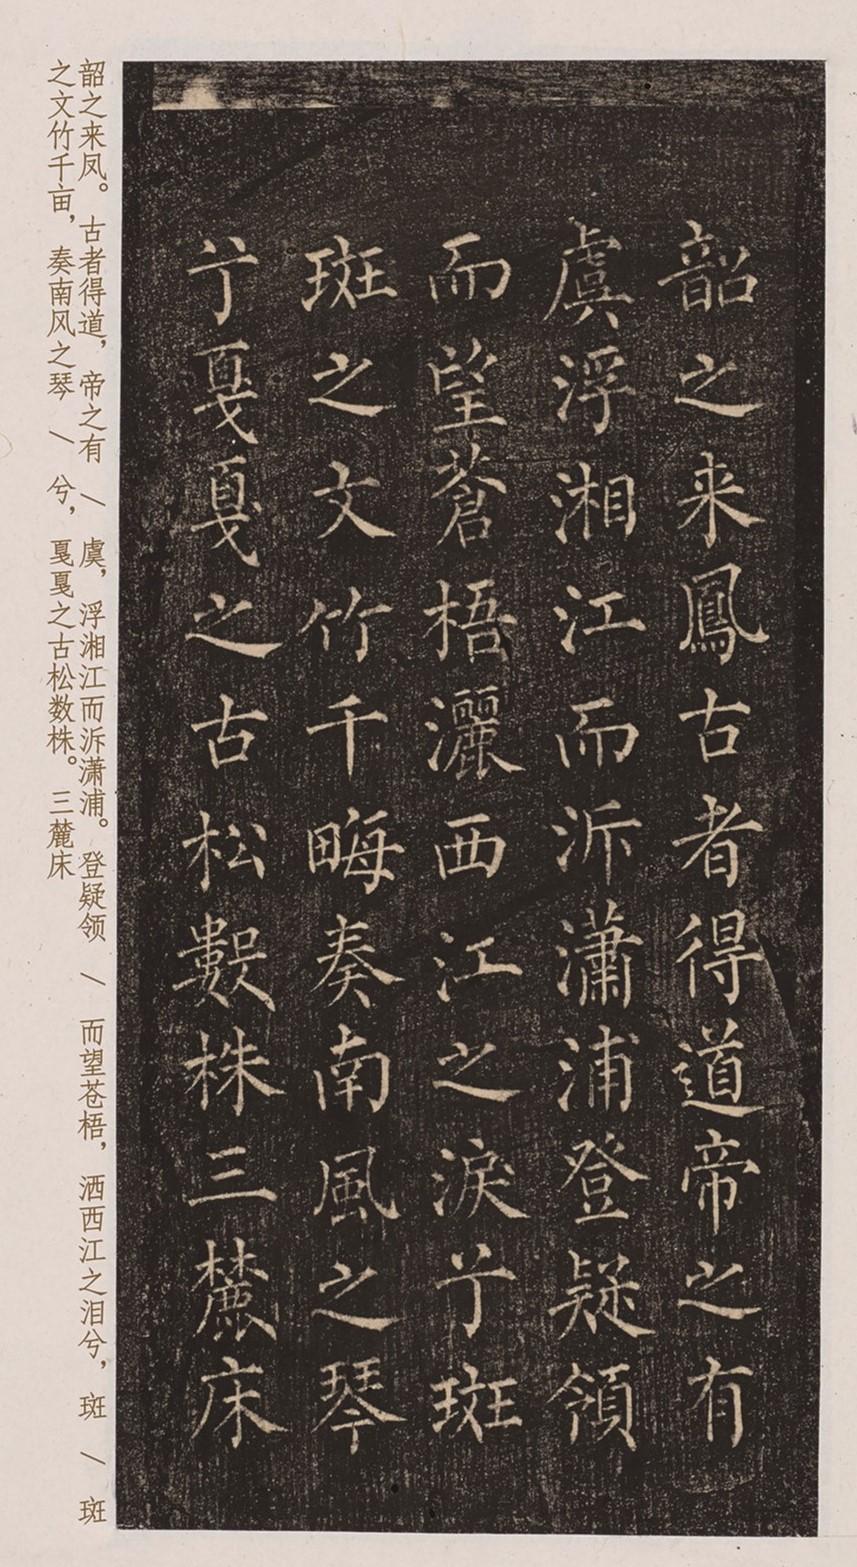 韶之来鳳古者得道帝之有
虞浮湘江而泝瀟浦登疑領
而望蒼梧灑西江之淚兮斑
斑之文竹千畮奏南風之琴
兮戛戛之古松數株三麓床
韶之来凤。古者得道，帝之有 \ 虞，浮湘江而泝潇浦。登疑领 \ 而望苍梧，洒西江之泪兮，斑 \ 斑
之文竹千亩，奏南风之琴 \ 兮，戛戛之古松数株。三麓床